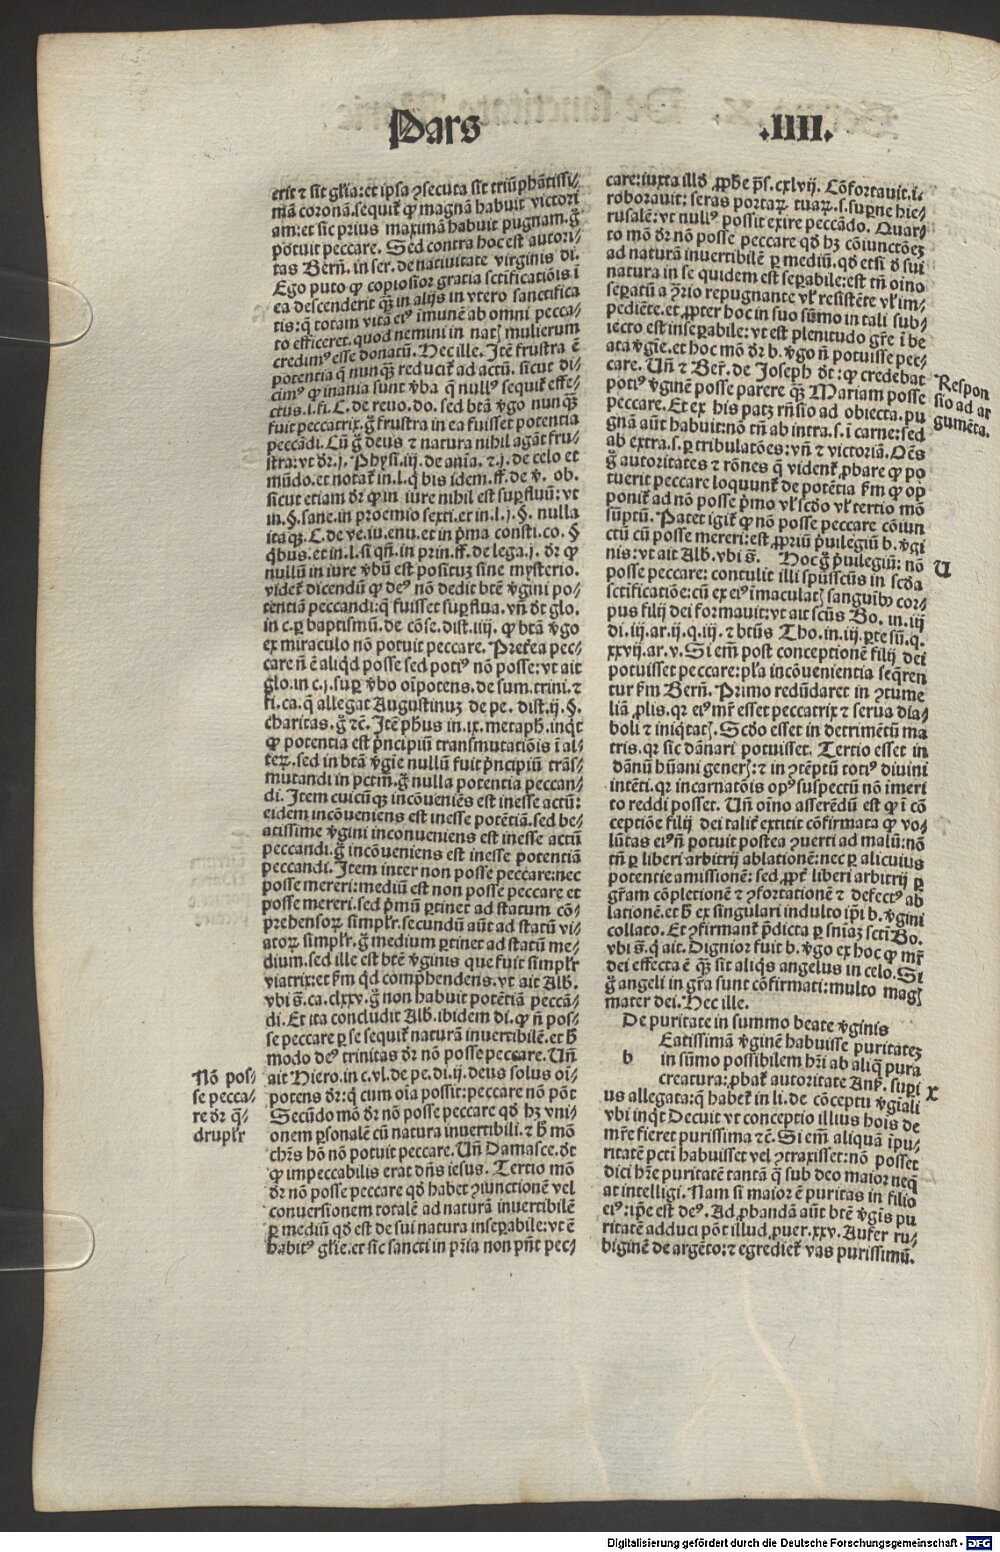 Pars .IIII.
erit ⁊ sit gl̃ia: et ipsa ꝯsecuta sit triũphãtissi⸗
mã coronã. sequit᷑ ꝙ magnã habuit victori
am: et sic prius maximã habuit pugnam. g̊
potuit peccare. Sed contra hoc est autori⸗
tas Bern̄. in ser. de natiuitate virginis di.
Ego puto ꝙ copiosior gratia sctificatiõis ĩ
ea descenderit q̃ꝫ in alijs in vtero sanctifica
tis: q̃ totam vitã eiꝰ imunẽ ab omni pecca⸗
to efficeret. quod nemini in natꝭ mulierum
credimꝰ esse donatũ. Hec ille. Itẽ frustra ẽ
potentia q̃ nunq̃ꝫ reducit᷑ ad actũ. sicut di⸗
cimꝰ ꝙ inania sunt v̓ba q̃ nullꝰ sequit᷑ effe⸗
ctus. l. fi. C. de reuo. do. sed btã v̓go nunq̃ꝫ
fuit peccatrix. g̊ frustra in ea fuisset potentia
peccãdi. Cũ g̊ deus ⁊ natura nihil agãt fru⸗
stra: vt dr̃. j. Physi. iij. de anĩa. ⁊. j. de celo et
mũdo. et notat᷑ in. l. q̃ bis idem. ff. de v̓. ob.
sicut etiam dr̃ ꝙ in iure nihil est suꝑfluũ: vt
in. §. sane. in proemio sexti. et in. l. j. §. nulla
itaqꝫ. C. de ve. iu. enu. et in p̃ma consti. co. §
q̃bus. et in. l. si qñ. in prin. ff. de lega. j. dr̃ ꝙ
nullũ in iure v̓bũ est positũꝫ sine mysterio.
videt᷑ dicendũ ꝙ deꝰ nõ dedit btẽ v̓gini po⸗
tentiã peccandi: q̃ fuisset suꝑflua. vñ dt̃ glo.
in c. ꝑ baptismũ. de cõse. dist. iiij. ꝙ btã v̓go
ex miraculo nõ potuit peccare. Preťea pec⸗
care ñ ẽ aliqd̃ posse sed potiꝰ nõ posse: vt ait
glo. in c. j. suꝑ v̓bo oĩpotens. de sum. trini. ⁊
fi. ca. q̃ allegat Augustinuꝫ de pe. dist. ij. §.
charitas. g̊ ⁊c̃. Itẽ ph̃us in. ix. metaph̃. inqt̃
ꝙ potentia est p̃ncipiũ transmutatiõis ĩ al⸗
teꝝ. sed in btã v̓gĩe nullũ fuit p̃ncipiũ trãs⸗
mutandi in pctm̃. g̊ nulla potentia peccan⸗
di. Item cuicũqꝫ incõueniẽs est inesse actũ:
eidem incõueniens est inesse potẽtiã. sed be⸗
atissime v̓gini inconueniens est inesse actũ
peccandi. g̊ incõueniens est inesse potentiã
peccandi. Item inter non posse peccare: nec
posse mereri: mediũ est non posse peccare et
posse mereri. sed p̃mũ ꝑtinet ad statum cõ⸗
prehensoꝝ simpl̃r. secundũ aũt ad statũ vi⸗
atoꝝ simpl̃r. g̊ medium ꝑtinet ad statũ me⸗
dium. sed ille est btẽ v̓ginis que fuit simpl̃r
viatrix: et fm̃ qd comp̃hendens. vt ait Alb̃.
vbi s̃. ca. clxxv. g̊ non habuit potẽtiã peccã⸗
di. Et ita concludit Alb̃. ibidem di. ꝙ ñ pos⸗
se peccare ꝑ se sequit᷑ naturã inuertibilẽ. et h̃
modo deꝰ trinitas dr̃ nõ posse peccare. Uñ
ait Hiero. in c. vl. de pe. di. ij. deus solus oĩ⸗
potens dr̃: q̃ cum oĩa possit: peccare nõ põt
Secũdo mõ dr̃ nõ posse peccare qd̃ hꝫ vni⸗
onem ꝑsonalẽ cũ natura inuertibili. ⁊ h̃ mõ
chr̃s hõ nõ potuit peccare. Uñ Damasce. dt̃
ꝙ impeccabilis erat dñs iesus. Tertio mõ
dr̃ nõ posse peccare qd̃ habet ꝯiunctionẽ vel
conuersionem totalẽ ad naturã inuertibilẽ
ꝑ mediũ qd̃ est de sui natura inseꝑabile: vt ẽ
habitꝰ gl̃ie. et sic sancti in pr̃ia non pñt pec⸗
Nõ pos⸗
se pecca⸗
re dr̃ q̃⸗
drupl̃r
care: iuxta illd̃ ꝓph̃e ps̃. cxlvij. Cõfortauit. i.
roborauit: seras portaꝝ tuaꝝ. s. suꝑne hie⸗
rusalẽ: vt nullꝰ possit exire peccãdo. Quar⸗
to mõ dr̃ nõ posse peccare qd̃ hꝫ cõiunctõeꝫ
ad naturã inuertibilẽ ꝑ mediũ. qd̃ etsi d̃ sui
natura in se quidem est seꝑabile: est tñ oĩno
seꝑatũ a ꝯ̃rio repugnante vl̃ resistẽte vl̃ im⸗
pediẽte. et ꝓpter hoc in suo sũmo in tali sub⸗
iecto est inseꝑabile: vt est plenitudo gr̃e ĩ be
ata v̓gĩe. et hoc mõ dr̃ b. v̓go ñ potuisse pec⸗
care. Uñ ⁊ Ber̃. de Joseph dt̃: ꝙ credebat
potiꝰ v̓ginẽ posse parere q̃ꝫ Mariam posse
peccare. Et ex his patꝫ rñsio ad obiecta. pu
gnã aũt habuit: nõ tñ ab intra. s. ĩ carne: sed
ab extra. s. ꝑ tribulatões: vñ ⁊ victoriã. Oẽs
g̊ autoritates ⁊ rõnes q̃ vident᷑ ꝓbare ꝙ po
tuerit peccare loquunt᷑ de potẽtia fm̃ ꝙ op
ponit᷑ ad nõ posse p̃mo vl̃ scd̃o vl̃ tertio mõ
sũptũ. Patet igit᷑ ꝙ nõ posse peccare cõiun
ctũ cũ posse mereri: est ꝓpriũ p̃uilegiũ b. v̓gi
nis: vt ait Alb̃. vbi s̃. Hoc g̊ p̃uilegiũ: nõ
posse peccare: contulit illi spũsscũs in scd̃a
sctificatiõe: cũ ex eiꝰ ĩmaculatꝭ sanguibꝰ cor⸗
pus filij dei formauit: vt ait scũs Bo. in. iij
di. iij. ar. ij. q. iij. ⁊ btũs Tho. in. iij. ꝑte sũ. q.
xxvij. ar. v. Si em̃ post conceptionẽ filij dei
potuisset peccare: pl̃a incõuenientia seq̃ren
tur fm̃ Bern̄. Primo redũdaret in ꝯtume
liã ꝓlis. qr eiꝰ mr̃ esset peccatrix ⁊ serua dia⸗
boli ⁊ iniqtatꝭ. Scd̃o esset in detrimẽtũ ma
tris. qr sic dãnari potuisset. Tertio esset in
dãnũ hũani generꝭ: ⁊ in ꝯtẽptũ totiꝰ diuini
intẽti. qr incarnatõis opꝰ suspectũ nõ imeri
to reddi posset. Uñ oĩno asserẽdũ est ꝙ ĩ cõ
ceptiõe filij dei talit᷑ extitit cõfirmata ꝙ vo⸗
lũtas eiꝰ ñ potuit postea ꝯuerti ad malũ: nõ
tñ ꝑ liberi arbitrij ablationẽ: nec ꝑ alicuius
potentie amissionẽ: sed ꝓpt᷑ liberi arbitrij ꝑ
gr̃am cõpletionẽ ⁊ ꝯfortationẽ ⁊ defectꝰ ab
lationẽ. et h̃ ex singulari indulto ip̃i b. v̓gini
collato. Et ꝯfirmant᷑ p̃dicta ꝑ sñiaꝫ sctĩ Bo.
vbi s̃. q̃ ait. Dignior fuit b. v̓go ex hoc ꝙ mr̃
dei effecta ẽ q̃ꝫ sit aliq̃s angelus in celo. Si
g̊ angeli in gr̃a sunt cõfirmati: multo magꝭ
mater dei. Hec ille.
De puritate in summo beate v̓ginis
b Eatissimã v̓ginẽ habuisse puritateꝫ
in sũmo possibilem hr̃i ab aliq̃ pura
creatura: ꝓbat᷑ autoritate Anẽ. supi
us allegata: q̃ habet᷑ in li. de cõceptu v̓giali
vbi inqt̃ Decuit vt conceptio illius hois de
mr̃e fieret purissima ⁊c̃. Si em̃ aliquã ĩpu⸗
ritatẽ pctĩ habuisset vel ꝯtraxisset: nõ posset
dici hr̃e puritatẽ tantã q̃ sub deo maior neq̃
at intelligi. Nam si maior ẽ puritas in filio
eiꝰ: ip̃e est deꝰ. Ad ꝓbandã aũt btẽ v̓gis pu
ritatẽ adduci põt illud ꝓuer. xxv. Aufer ru⸗
biginẽ de argẽto: ⁊ egrediet᷑ vas purissimũ.
Respon
sio ad ar
gumẽta.
U
X
Digitalisierung gefördert durch die Deutsche Forschungsgemeinschaft - DFG